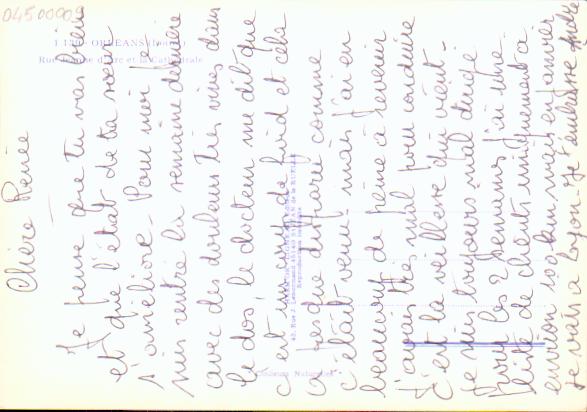 04500009
1 1380 - ORLEANS (Loiret)
Rue Jeanne d'Arc et la Cathédrale
Chère Renée
Je pense que tu vas bien
et que l'état de ta soeur
s'améliore - Pour moi je
suis rentré la semaine dernière
avec des douleurs très vives dans
le dos. Le docteur me dit que
c'est un coup de froid et cela
a presque disparu comme
c'était venu mais j'ai eu
beaucoup de peine à revenir
J'avais très mal pour conduire
C'est la vieillesse qui vient -
Je suis toujours mal dirigé
tous les 2 semaines j'ai une
liste de clients uniquement à
environ 100 km mais en janvier
je vais à Lyon. Je t'embrasse
Couleurs Naturelles